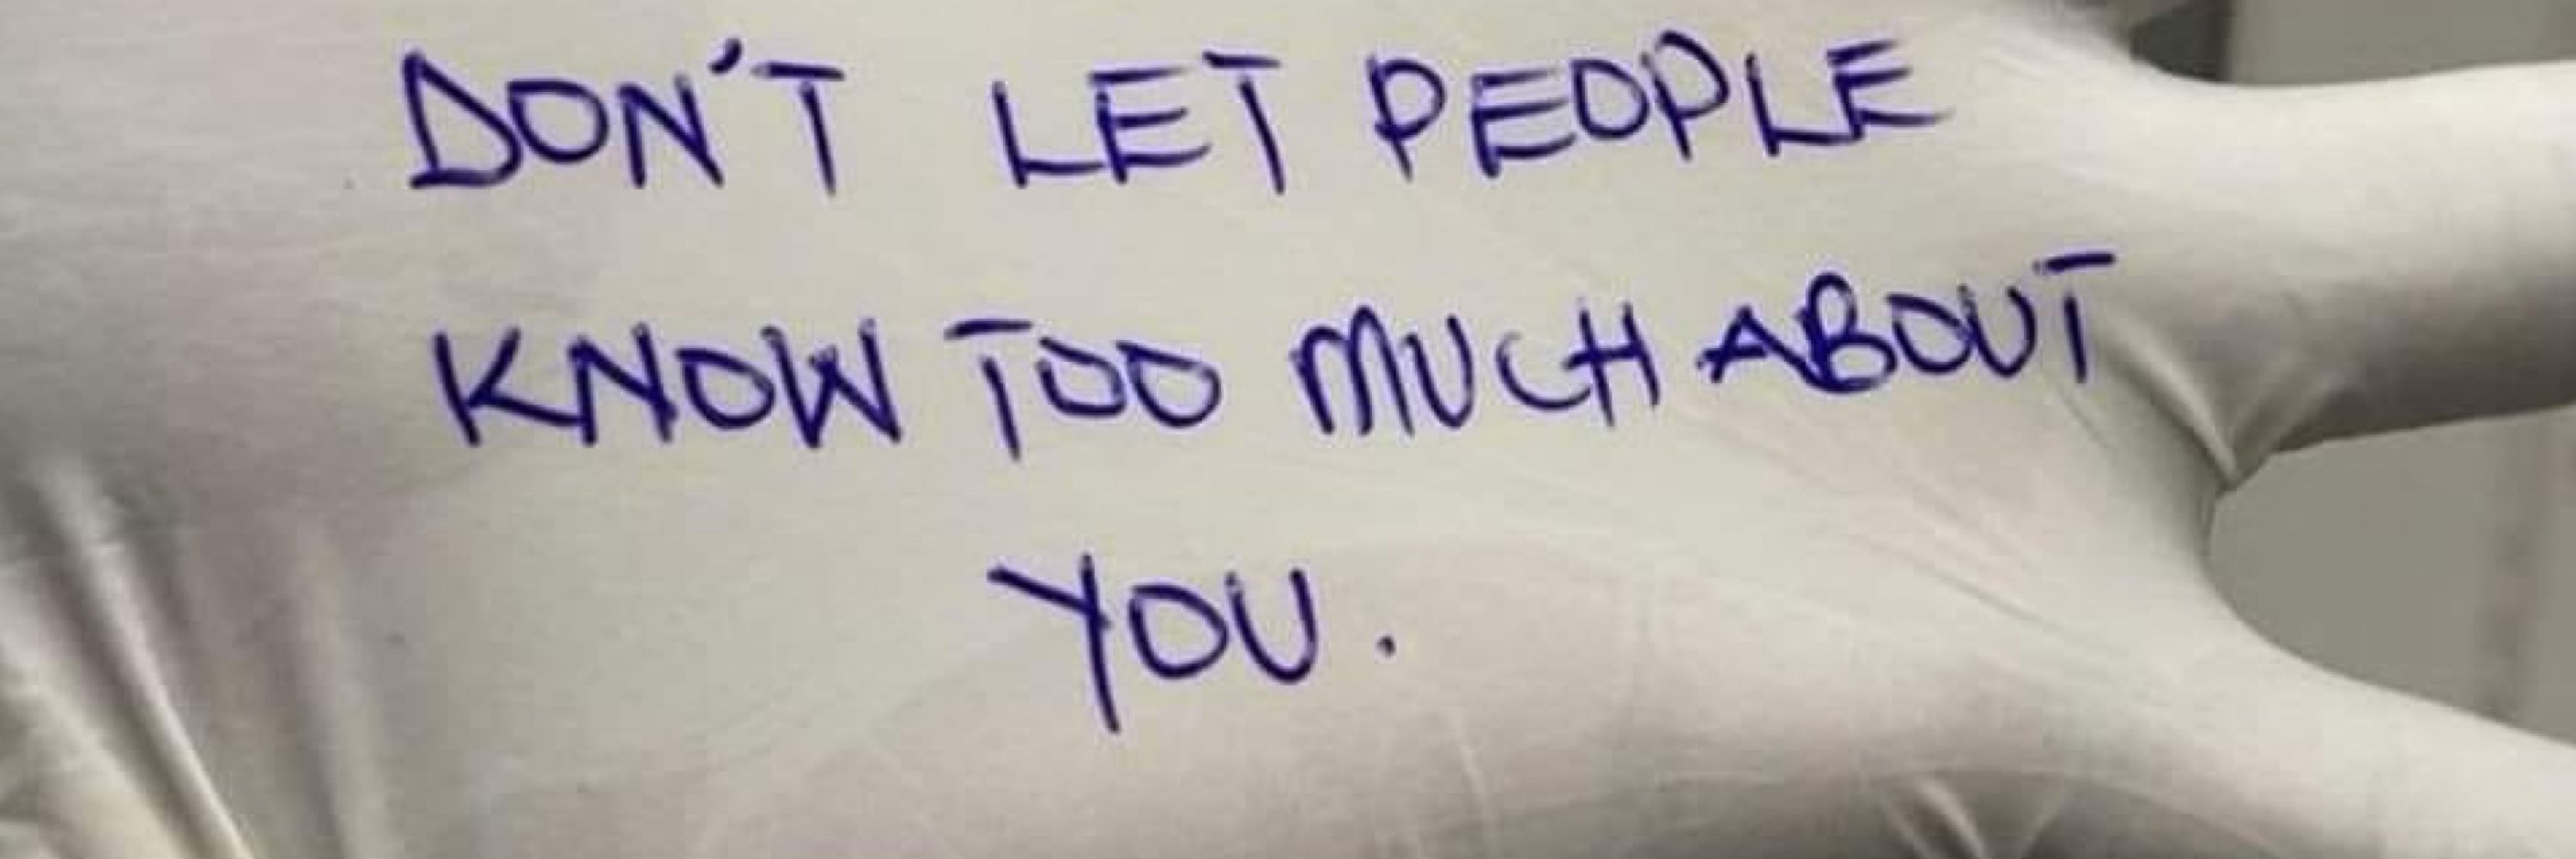 DON'T LET PEOPLE
KNOW TOO MUCH ABOUT
YOU.